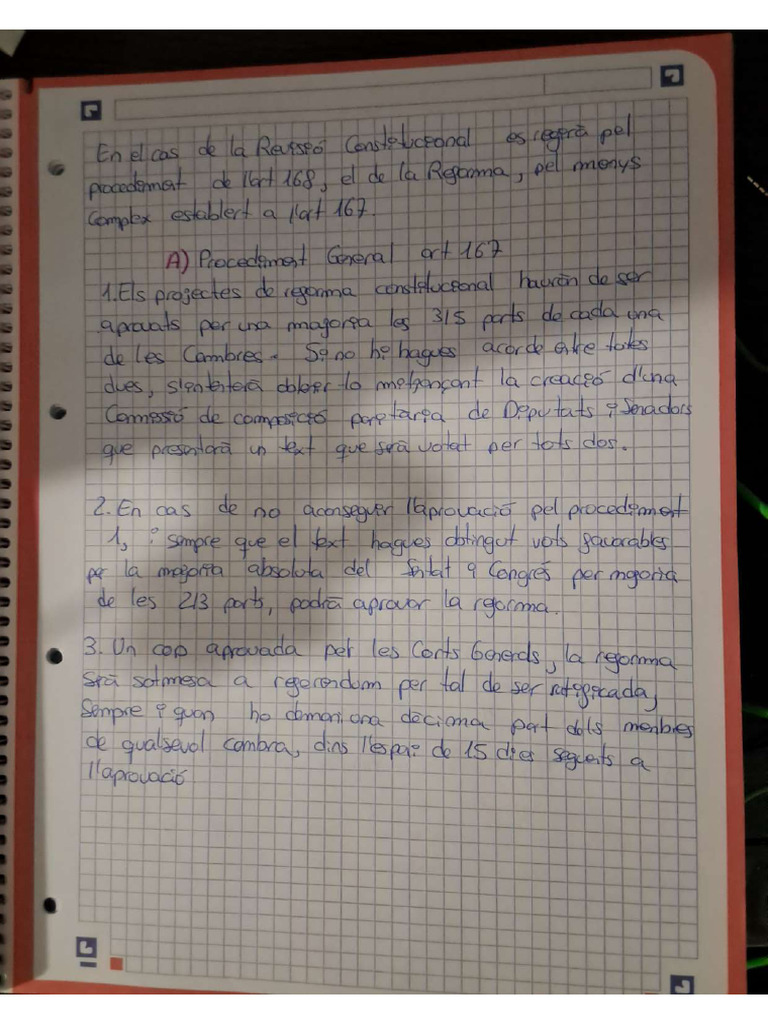 En el cas de la Revisió Constitucional es regirà pel
procediment de l'art 168, el de la Reforma, pel menys
Complex establert a l'art 167.
A) Procediment General art 167
1. Els projectes de reforma constitucional hauràn de ser
aprovats per una majoria les 3/5 parts de cada una
de les Cambres. Si no hi hagues acord entre totes
dues, s'intentarà obtenir-lo mitjançant la creació d'una
Comissió de composició paritaria de Deputats i Senadors
que presentarà un text que serà votat per tots dos.
2. En cas de no aconseguir l'aprovació pel procediment
1, i sempre que el text hagues obtingut vots favorables
per la majoria absoluta del Senat q Congrés per majoria
de les 2/3 parts, podrà aprovar la reforma.
3. Un cop aprovada per les Corts Generals, la reforma
serà sotmesa a referendum per tal de ser ratificada,
Sempre i quan ho demani una dècima part dels menbres
de qualsevol cambra, dins l'espai de 15 dies seguents a
l'aprovació